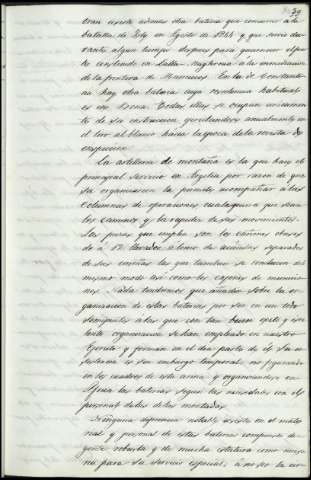 39
tran existe ademas otra bateria que concurrió a la
batalla de Isly en Agosto de 1844 y que servia du-
rante algun tiempo despues para guarnecer el pun-
to construido en Lalla Magrhnia a la inmediacion
de la frontera de Marruecos. En la de Constanti-
na hay otra bateria cuya residencia habitual
es en Bona. Todas ellas se ocupan unicamen-
te de su instruccion egercitandose anualmente en
el tiro al blanco hacia la epoca de la revista de
inspeccion.
La artilleria de montaña es la que hace el
principal servicio en Argelia por razon de que
su organizacion la permite acompañar a las
Columnas de operaciones cualesquiera que sean
los caminos y la rapidez de sus movimientos.
Las piezas que emplea son los cañones obuses
de á 12 llevados a lomo de acémilas separados
de sus cureñas las que tambien se conducen del
mismo modo asi como los cajones de municio-
nes. Nada tendremos que añadir sobre la or-
ganizacion de estas baterias por ser en un todo
semejantes a las que con tan buen exito y esce-
lente organizacion se han empleado en nuestro
Egercito y forman en el dia parte de él. Su ec-
sistencia es sin embargo temporal, no figurando
en los cuadros de esta arma y organizandose en
Africa las baterias segun las necesidades con el
personal de las de las montadas.
Ninguna diferencia notable existe en el mate-
rial y personal de estas baterias compuesto de
gente robusta y de mucha estatura como necesa-
ria para su servicio especial; á no ser la cir-